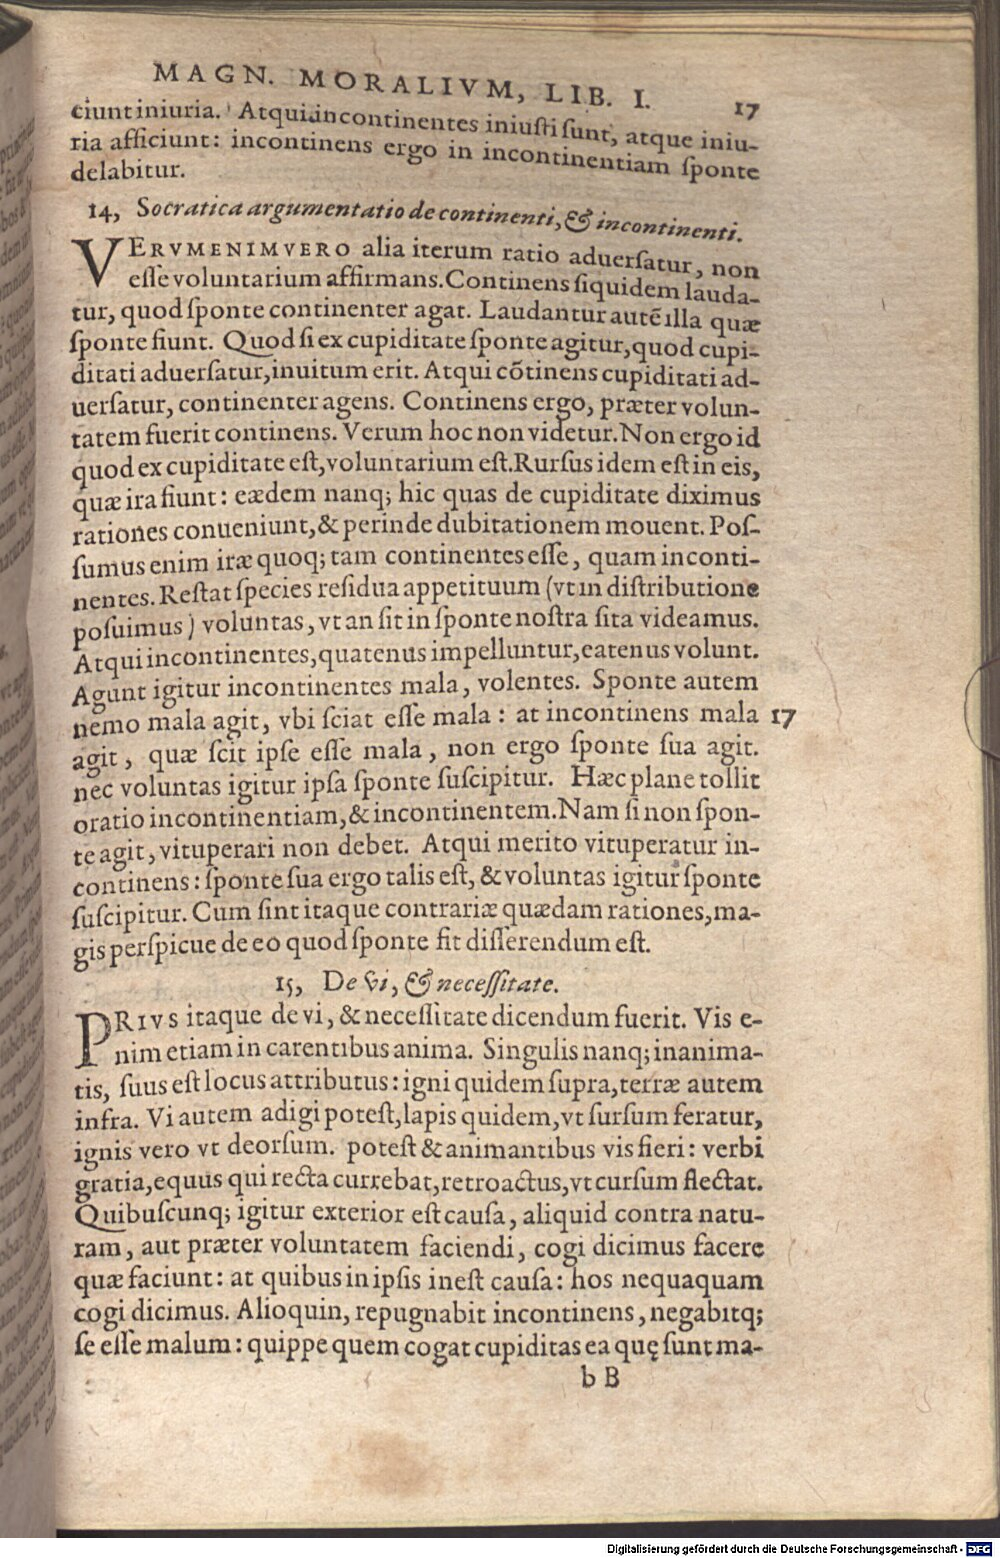 MAGN. MORALIVM, LIB. I. 17
ciunt iniuria. Atqui incontinentes iniusti sunt, atque iniu-
ria afficiunt: incontinens ergo in incontinentiam sponte
delabitur.
14, Socratica argumentatio de continenti, & incontinenti.
VERVMENIMVERO alia iterum ratio aduersatur, non
esse voluntarium affirmans. Continens siquidem lauda-
tur, quod sponte continenter agat. Laudantur autē illa quæ
sponte fiunt. Quod si ex cupiditate sponte agitur, quod cupi-
ditati aduersatur, inuitum erit. Atqui cōtinens cupiditati ad-
uersatur, continenter agens. Continens ergo, præter volun-
tatem fuerit continens. Verum hoc non videtur. Non ergo id
quod ex cupiditate est, voluntarium est. Rursus idem est in eis,
quæ ira fiunt: eædem nanq; hic quas de cupiditate diximus
rationes conueniunt, & perinde dubitationem mouent. Pos-
sumus enim iræ quoq; tam continentes esse, quam inconti-
nentes. Restat species residua appetituum (vt in distributione
posuimus) voluntas, vt an sit in sponte nostra sita videamus.
Atqui incontinentes, quatenus impelluntur, eatenus volunt.
Agunt igitur incontinentes mala, volentes. Sponte autem
nemo mala agit, vbi sciat esse mala: at incontinens mala 17
agit, quæ scit ipse esse mala, non ergo sponte sua agit.
nec voluntas igitur ipsa sponte suscipitur. Hæc plane tollit
oratio incontinentiam, & incontinentem. Nam si non spon-
te agit, vituperari non debet. Atqui merito vituperatur in-
continens: sponte sua ergo talis est, & voluntas igitur sponte
suscipitur. Cum sint itaque contrariæ quædam rationes, ma-
gis perspicue de eo quod sponte fit disserendum est.
15, De vi, & necessitate.
PRIVS itaque de vi, & necessitate dicendum fuerit. Vis e-
nim etiam in carentibus anima. Singulis nanq; inanima-
tis, suus est locus attributus: igni quidem supra, terræ autem
infra. Vi autem adigi potest, lapis quidem, vt sursum feratur,
ignis vero vt deorsum. potest & animantibus vis fieri: verbi
gratia, equus qui recta currebat, retroactus, vt cursum flectat.
Quibuscunq; igitur exterior est causa, aliquid contra natu-
ram, aut præter voluntatem faciendi, cogi dicimus facere
quæ faciunt: at quibus in ipsis inest causa: hos nequaquam
cogi dicimus. Alioquin, repugnabit incontinens, negabitq;
se esse malum: quippe quem cogat cupiditas ea quę sunt ma-
b B
Digitalisierung gefördert durch die Deutsche Forschungsgemeinschaft - DFG